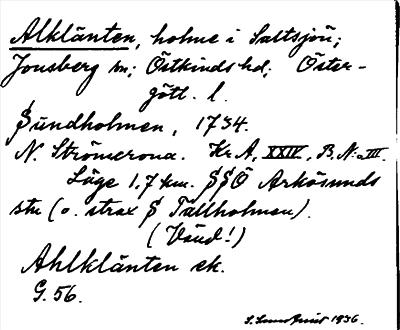 Alklänten, holme i Saltsjön;
Jonsberg sn; Östkinds hd; Öster-
götl. l.
Sundholmen, 1734.
N. Strömerona. Kr.A, XXIV, B. N:o III.
Läge 1,7 km. SSÖ Arkösunds
stn (o. strax S Tallholmen).
(Vänd!)
Ahlklänten ek.
G. 56.
1936.